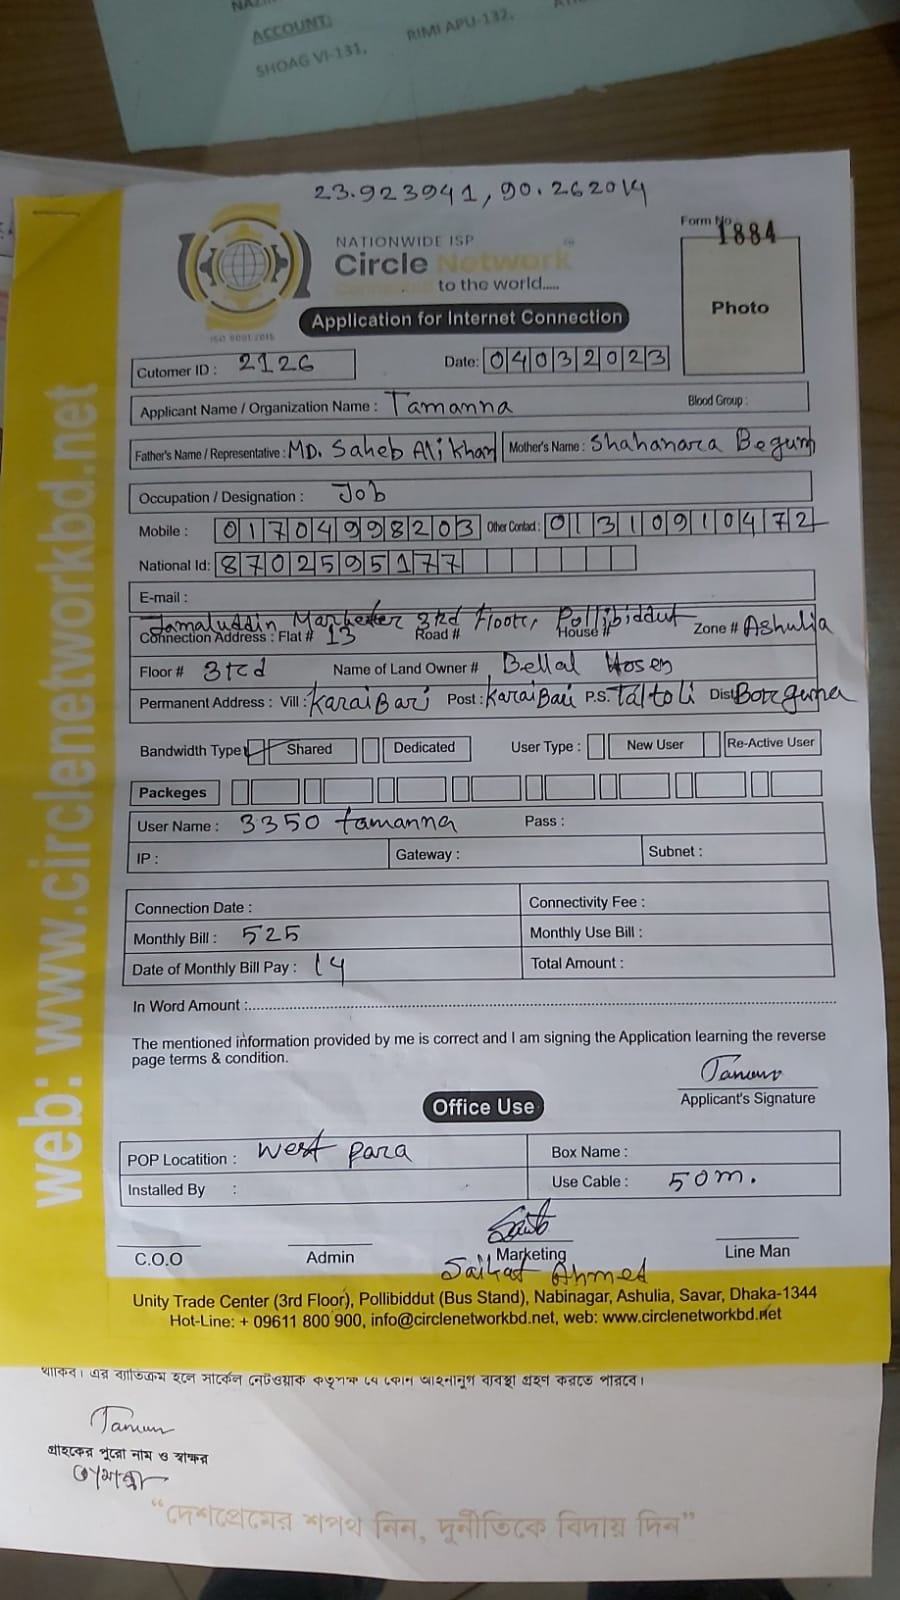 ACCOUNT:
SHOAG VI-131, RIMI APU-132,
23.923941, 90.262014
Form No.
1884
NATIONWIDE ISP
Circle Network
to the world.....
ISO 9001:2015
Photo
Application for Internet Connection
Cutomer ID : 2126 Date: 04032023
Applicant Name / Organization Name : Tamanna Blood Group :
Father's Name / Representative : MD. Saheb Ali Khan Mother's Name : Shahanara Begum
Occupation / Designation : Job
Mobile : 01704998203 Other Contact : 01310910472
National Id: 8702595177
E-mail :
Jamaluddin 3rd Floor, Pollibiddut
Connection Address : Flat # 13 Road # House # Zone # Ashulia
Floor # 3rd Name of Land Owner # Bellal Hosen
Permanent Address : Vill : Karai Bari Post : Karai Bari P.S. Taltoli Dist Borguna
Bandwidth Type Shared Dedicated User Type : New User Re-Active User
Packeges
User Name : 3350 tamanna Pass :
IP : Gateway : Subnet :
Connection Date : Connectivity Fee :
Monthly Bill : 525 Monthly Use Bill :
Date of Monthly Bill Pay : 14 Total Amount :
In Word Amount :
The mentioned information provided by me is correct and I am signing the Application learning the reverse
page terms & condition.
Applicant's Signature
Office Use
POP Locatition : West para Box Name :
Installed By : Use Cable : 50m.
C.O.O Admin Marketing Line Man
Saikat Ahmed
Unity Trade Center (3rd Floor), Pollibiddut (Bus Stand), Nabinagar, Ashulia, Savar, Dhaka-1344
Hot-Line: + 09611 800 900, info@circlenetworkbd.net, web: www.circlenetworkbd.net
web: www.circlenetworkbd.net
থাকিব। এর ব্যতিক্রম হলে সার্কেল নেটওয়াক কতৃপক্ষ যে কোন আইনানুগ ব্যবস্থা গ্রহণ করতে পারবে।
গ্রাহকের পুরো নাম ও স্বাক্ষর
তামান্না
“দেশপ্রেমের শপথ নিন, দুর্নীতিকে বিদায় দিন”